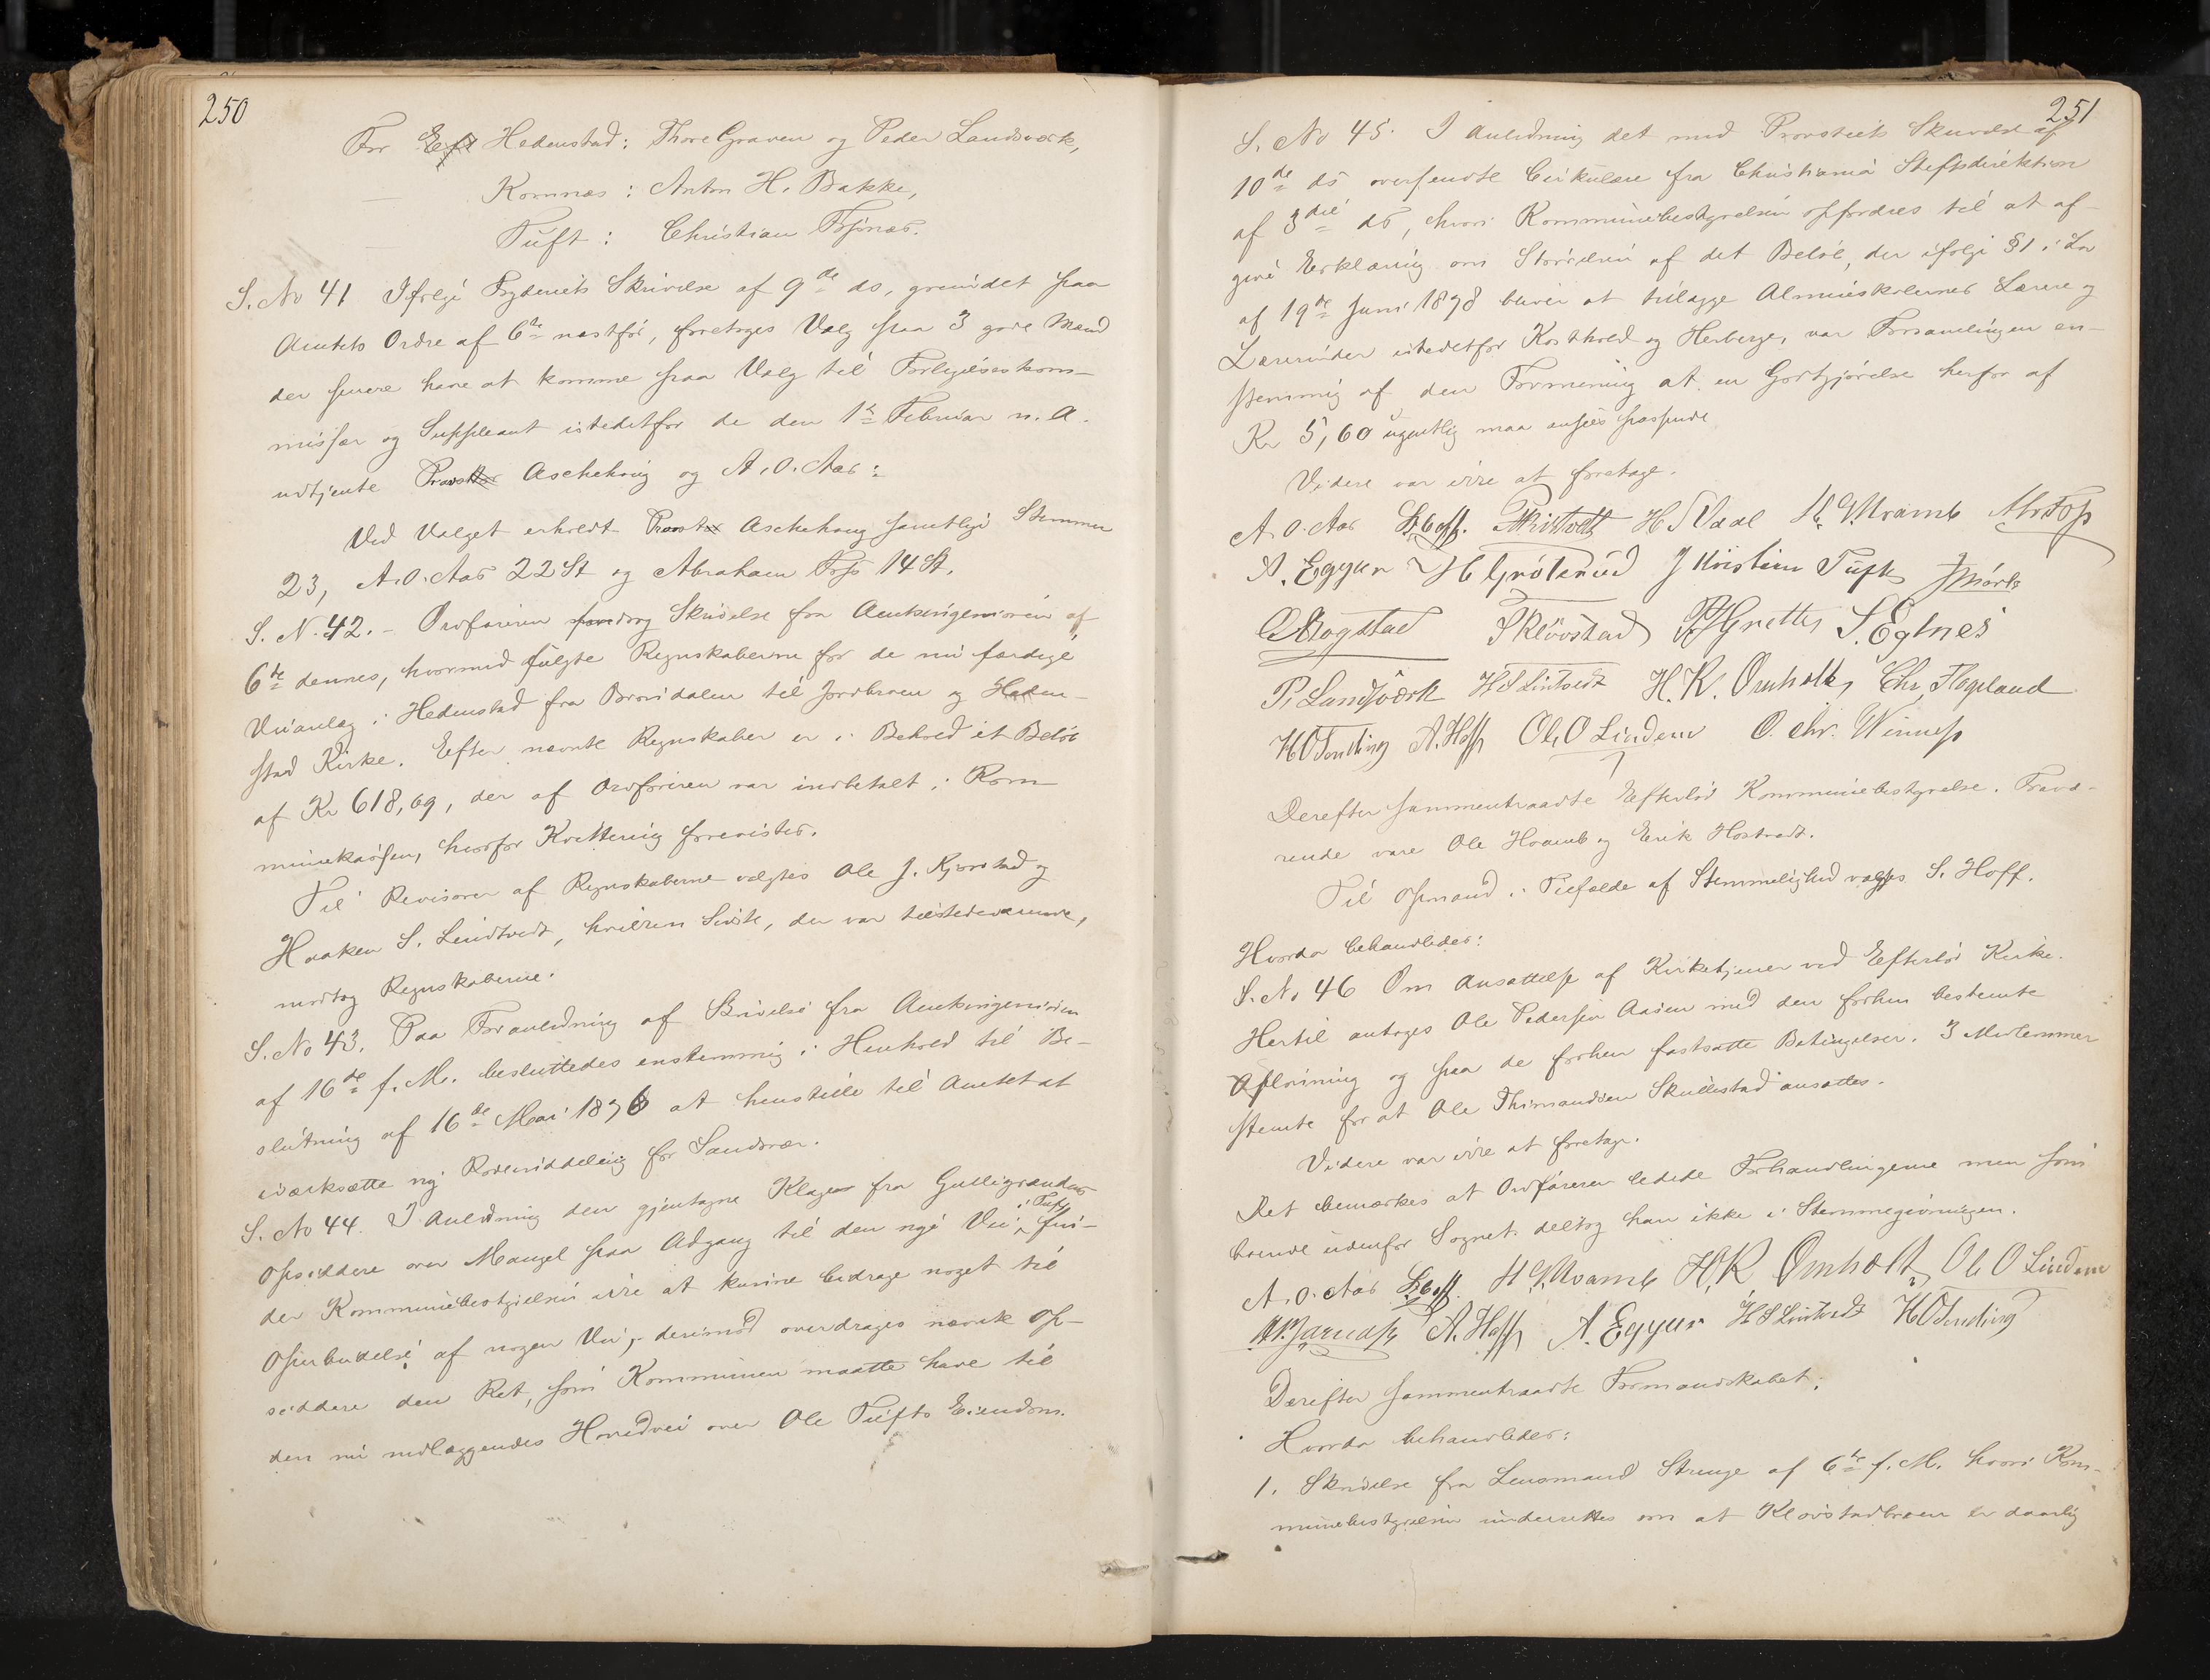 250
For Eft Hedenstad: Thore Graven og Peder Landsværk,
— Komnæs: Anton H. Bakke,
— Tuft: Christian Fosnæs.
S. No 41 Ifølge Fogderiets Skrivelse af 9de ds, grundet paa
Amtets Ordre af 6te næstfør, foretoges Valg paa 3 gode Mænd
der senere have at komme paa Valg til Forligelseskom-
missær og Suppleant istedetfor de den 1ste Februar n. A.
udtjente Provst Aschehoug og A. O. Aas:
Ved Valget erholdt Provst Aschehoug samtlige Stemmer
23, A. O. Aas 22 St og Abraham Foss 14 St.
S. N. 42. – Ordføreren foredrog Skrivelse fra Amtsingeniøren af
6te dennes, hvormed fulgte Regnskaberne for de nu færdige
Veianlæg i Hedenstad fra Brondalen til Jordbroen og Heden-
stad Kirke. Efter nævnte Regnskaber er i Behold et Beløb
af Kr 618,69, der af Ordføreren var indbetalt i Kom-
munekassen, hvorfor Kvittering forevistes.
Til Revisorer af Regnskaberne valgtes Ole J. Kjørstad og
Haaken S. Lindtvedt, hvilken Sidste, der var tilstedeværende,
modtog Regnskaberne.
S. No 43. Paa Foranledning af Skrivelse fra Amtsingeniøren
af 16de f. M. besluttedes enstemmig i Henhold til Be-
slutning af 16de Mai 1896 at henstille til Amtet at
iværksætte ny Rodeinddeling for Sandsvær.
S. No 44. I Anledning den gjentagne Klage fra Gulligrændens
Opsiddere over Mangel paa Adgang til den nye Vei i Tuft, fin-
der Kommunebestyrelsen ikke at kunne bidrage noget til
Oparbeidelse af nogen Vei; derimod overdrages nævnte Op-
siddere den Ret, som Kommunen maatte have til
den nu nedlæggendes Hovedvei over Ole Tufts Eiendom.
251
S. No 45. I Anledning det med Provstiets Skrivelse af
10de ds oversendte Cirkulære fra Christiania Stiftsdirektion
af 3die ds, hvori Kommunebestyrelsen opfordres til at af-
give Erklæring om Størrelsen af det Beløb, der ifølge § 1 i Lov
af 19de Juni 1898 bliver at tillægge Almueskolernes Lærere og
Lærerinder istedetfor Kosthold og Herberge, var Forsamlingen en-
stemmig af den Formening at en Godtgjørelse herfor af
Kr 5,60 ugentlig maa ansees passende
Videre var ikke at foretage.
A. O. Aas S. Hoff. H S Vaal H. G. Hvamb Abr Foss
A. Eggur H Grøterud J Kristian Tuft J Mørk
O Rogstad P Kløvstad S. Eglnes
P. Landsværk H S Lintvedt H. K. Omholt, Chr. Flageland
H O Tendling A. Hoff Ole O Lindem O. Chr. Winness
Derefter sammentraadte Efteløt Kommunebestyrelse. Fravæ-
rende vare Ole Hvamb og Erik Hostvedt.
Til Opmand i Tilfælde af Stemmelighed valgtes S. Hoff.
Hvorda behandledes:
S. No 46 Om Ansættelse af Kirketjener ved Efteløt Kirke.
Hertil antoges Ole Pedersen Aasen med den forhen bestemte
Aflønning og paa de forhen fastsatte Betingelser. 3 Medlemmer
stemte for at Ole Thimandsen Skullestad ansattes.
Videre var ikke at foretage.
Det bemærkes at Ordføreren ledede Forhandlingerne men som
boende udenfor Sognet deltog han ikke i Stemmegivningen.
A. O. Aas S. Hoff. H. G. Hvamb H. K. Omholt, Ole O Lindem
A. Hoff A. Eggur H S Lintvedt H O Tendling
Derefter sammentraadte Formandskabet.
Hvorda behandledes:
1. Skrivelse fra Lensmand Strenge af 6te f. M. hvori Kom-
munebestyrelsen underrettes om at Kløvstadbroen er daarlig